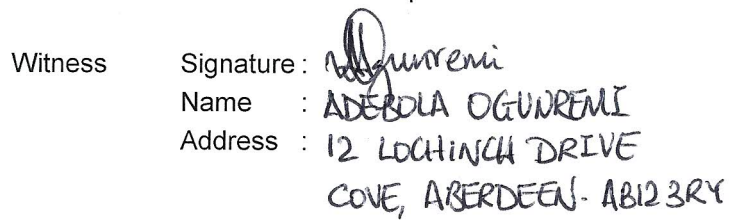 Witness Signature : Ogunremi
Name : ADEBOLA OGUNREMI
Address : 12 LOCHINCH DRIVE
COVE, ABERDEEN. AB12 3RY